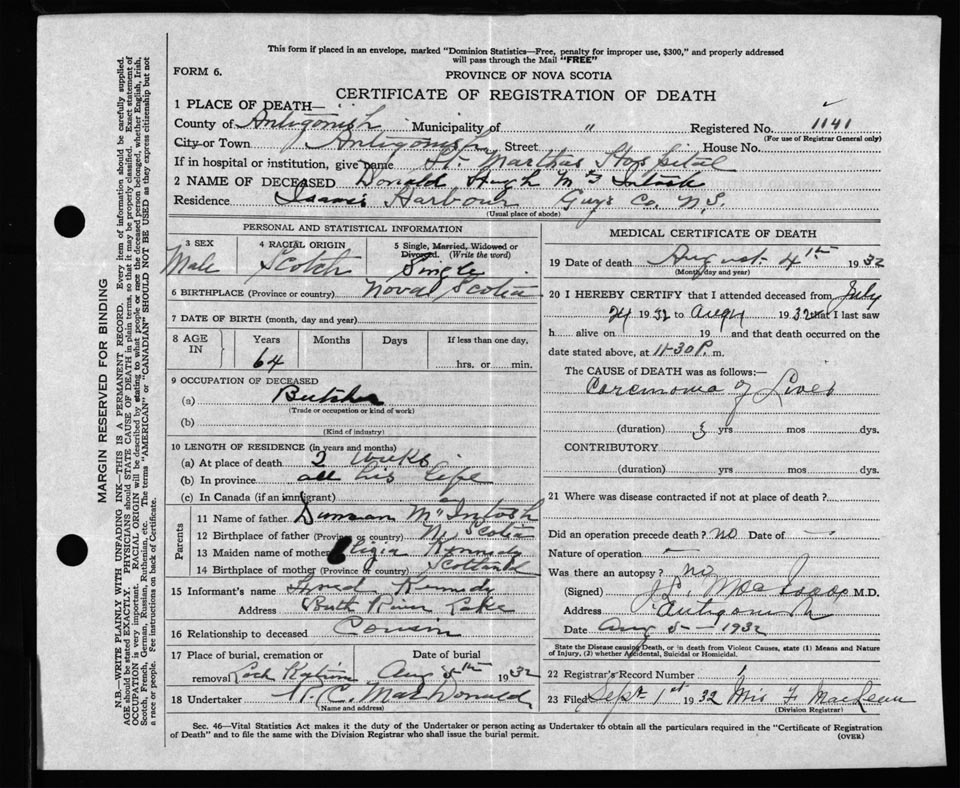 This form if placed in an envelope, marked "Dominion Statistics—Free, penalty for improper use, $300," and properly addressed
will pass through the Mail "FREE"
FORM 6.
PROVINCE OF NOVA SCOTIA
CERTIFICATE OF REGISTRATION OF DEATH
1 PLACE OF DEATH—
County of Antigonish Municipality of " Registered No. 1141
(For use of Registrar General only)
City or Town Antigonish Street House No.
If in hospital or institution, give name St. Marthas Hospital
2 NAME OF DECEASED Donald Hugh McIntosh
Residence Isaacs Harbour Guys Co. N.S.
(Usual place of abode)
PERSONAL AND STATISTICAL INFORMATION
3 SEX 4 RACIAL ORIGIN 5 Single, Married, Widowed or
Divorced. (Write the word)
Male Scotch Single
6 BIRTHPLACE (Province or country) Nova Scotia
7 DATE OF BIRTH (month, day and year)
8 AGE IN Years Months Days If less than one day,
64 hrs. or min.
9 OCCUPATION OF DECEASED
(a) Butcher
(Trade or occupation or kind of work)
(b)
(Kind of industry)
10 LENGTH OF RESIDENCE (in years and months)
(a) At place of death 2 weeks
(b) In province all his life
(c) In Canada (if an immigrant)
Parents
11 Name of father Duncan McIntosh
12 Birthplace of father (Province or country) N. Scotia
13 Maiden name of mother Kennedy
14 Birthplace of mother (Province or country) Scotland
15 Informant's name Kennedy
Address River Lake
16 Relationship to deceased Cousin
17 Place of burial, cremation or Date of burial
removal Loch Katrine Aug 5th 1932
18 Undertaker MacDonald
(Name and address)
MEDICAL CERTIFICATE OF DEATH
19 Date of death August 4th 1932
(Month, day and year)
20 I HEREBY CERTIFY that I attended deceased from July
24 1932 to Aug 4 1932 that I last saw
h alive on 19 and that death occurred on the
date stated above, at 11-30 P. m.
The CAUSE of DEATH was as follows:
Carcinoma of Liver
(duration) yrs mos dys.
CONTRIBUTORY
(duration) yrs. mos. dys.
21 Where was disease contracted if not at place of death?
Did an operation precede death? no Date of —
Nature of operation —
Was there an autopsy? no
(Signed) M.D.
Address Antigonish
Date Aug 5 — 1932
State the Disease causing Death, or in death from Violent Causes, state (1) Means and Nature
of Injury, (2) whether Accidental, Suicidal or Homicidal.
22 Registrar's Record Number
23 Filed Sept 1st 1932 F. MacLean
(Division Registrar)
Sec. 46—Vital Statistics Act makes it the duty of the Undertaker or person acting as Undertaker to obtain all the particulars required in the "Certificate of Registration
of Death" and to file the same with the Division Registrar who shall issue the burial permit.
(OVER)
MARGIN RESERVED FOR BINDING
N.B.—WRITE PLAINLY WITH UNFADING INK—THIS IS A PERMANENT RECORD. Every item of information should be carefully supplied.
AGE should be stated EXACTLY. PHYSICIANS should STATE CAUSE OF DEATH in plain terms, so that it may be properly classified. Exact statement of
OCCUPATION is very important. RACIAL ORIGIN will be described by stating to what people or race the deceased person belonged, whether English, Irish,
Scotch, French, German, Russian, Ruthenian, etc. The terms "AMERICAN" or "CANADIAN" SHOULD NOT BE USED as they express citizenship but not
a race or people. See instructions on back of Certificate.